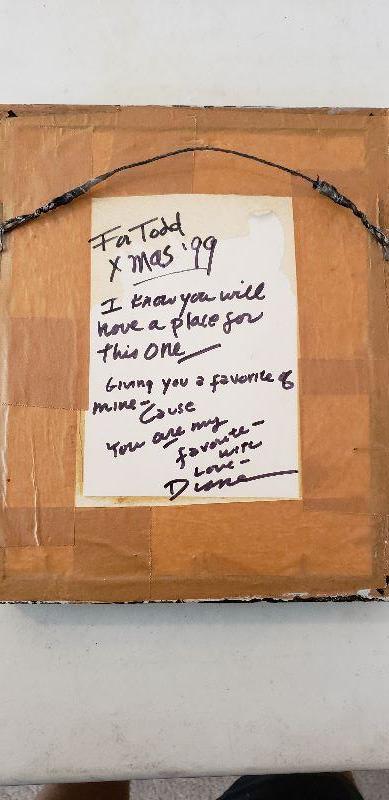 For Todd
X mas '99
I know you will
have a place for
this one
Giving you a favorite of
mine - Cause
You are my
favorite -
with
Love -
Diane